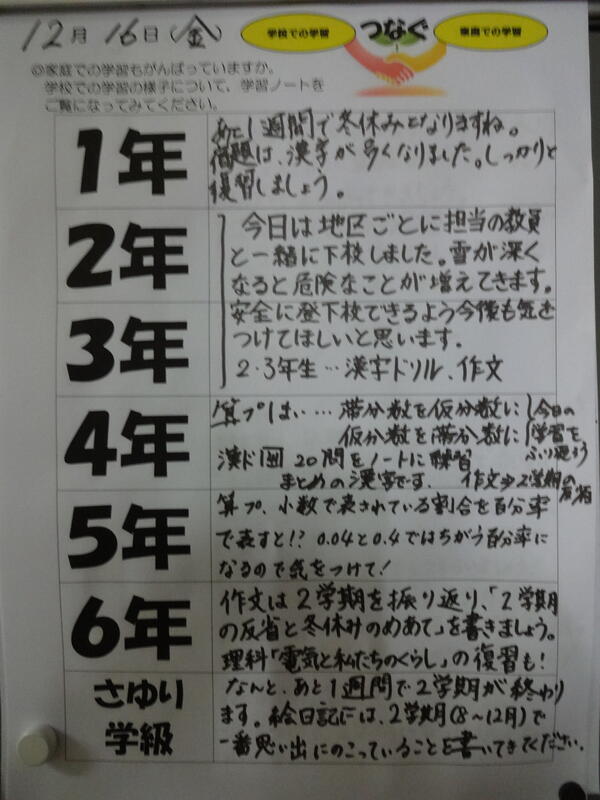 12月16日(金)
学校での学習
つなぐ
家庭での学習
◎家庭での学習もがんばっていますか。
学校での学習の様子について、学習ノートを
ご覧になってみてください。
1年
あと1週間で冬休みとなりますね。
宿題は、漢字が多くなりました。しっかりと
復習しましょう。
2年
3年
今日は地区ごとに担当の教員
と一緒に下校しました。雪が深く
なると危険なことが増えてきます。
安全に登下校できるよう今後も気を
つけてほしいと思います。
2・3年生…漢字ドリル、作文
4年
算プはい…帯分数を仮分数に
仮分数を帯分数に
今日の
学習を
ふり返ろう
漢ド 20問をノートに練習
まとめの漢字です。 作文→2学期の
反省
5年
算プ、小数で表されている割合を百分率
で表すと!? 0.04と0.4ではちがう百分率に
なるので気をつけて!
6年
作文は2学期を振り返り、「2学期
の反省と冬休みのめあて」を書きましょう。
理科「電気と私たちのくらし」の復習も!
さゆり
学級
なんと、あと1週間で2学期が終わり
ます。絵日記には、2学期(8~12月)で
一番思い出にのこっていることを書いてきてください。